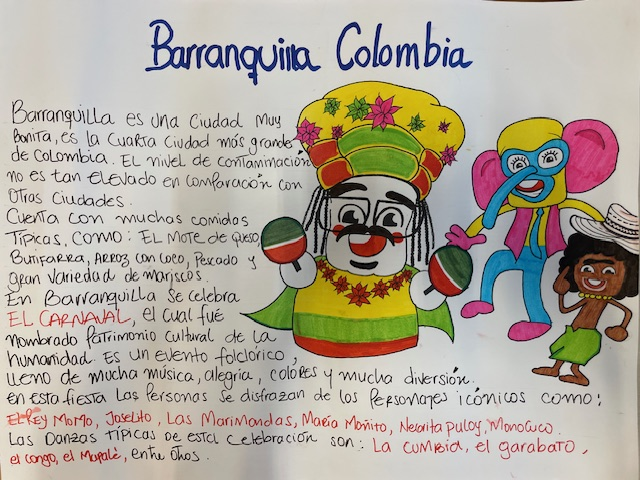 Barranquilla Colombia
Barranquilla es una ciudad muy
bonita, es la cuarta ciudad más grande
de Colombia. El nivel de contaminación
no es tan elevado en comparación con
otras ciudades.
Cuenta con muchas comidas
Típicas, como: El mote de queso,
Butifarra, Arroz con coco, Pescado y
gran variedad de mariscos.
En Barranquilla se celebra
EL CARNAVAL, el cual fué
nombrado Patrimonio cultural de la
humanidad. Es un evento folclórico,
lleno de mucha música, alegria, colores y mucha diversión.
en esta fiesta las personas se disfrazan de los personajes icónicos como:
El Rey Momo, Joselito, Las Marimondas, María Moñito, Negrita Puloy, Monocuco.
Las Danzas típicas de esta celebración son: La cumbia, el garabato,
el congo, el Mapalé, entre otros.